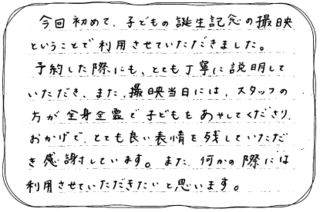 今回初めて、子どもの誕生記念の撮映
ということで利用させていただきました。
予約した際にも、とても丁寧に説明して
いただき、また、撮映当日には、スタッフの
方が全身全霊で子どもをあやしてくださり、
おかげで、とても良い表情を残していただ
き感謝しています。また、何かの際には
利用させていただきたいと思います。